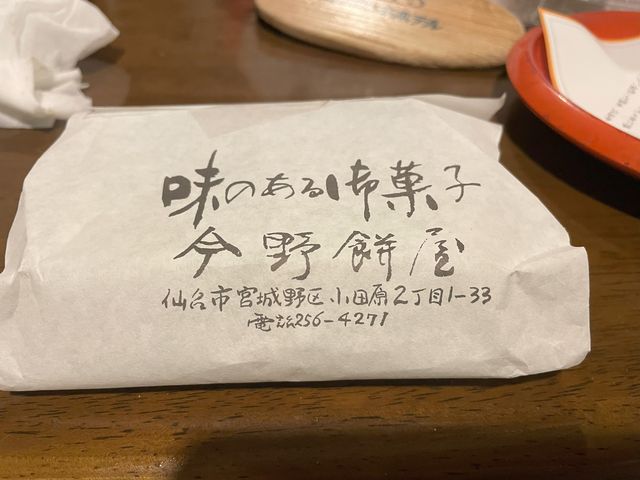 味のある御菓子
今野餅屋
仙台市宮城野区小田原2丁目1-33
電話256-4271